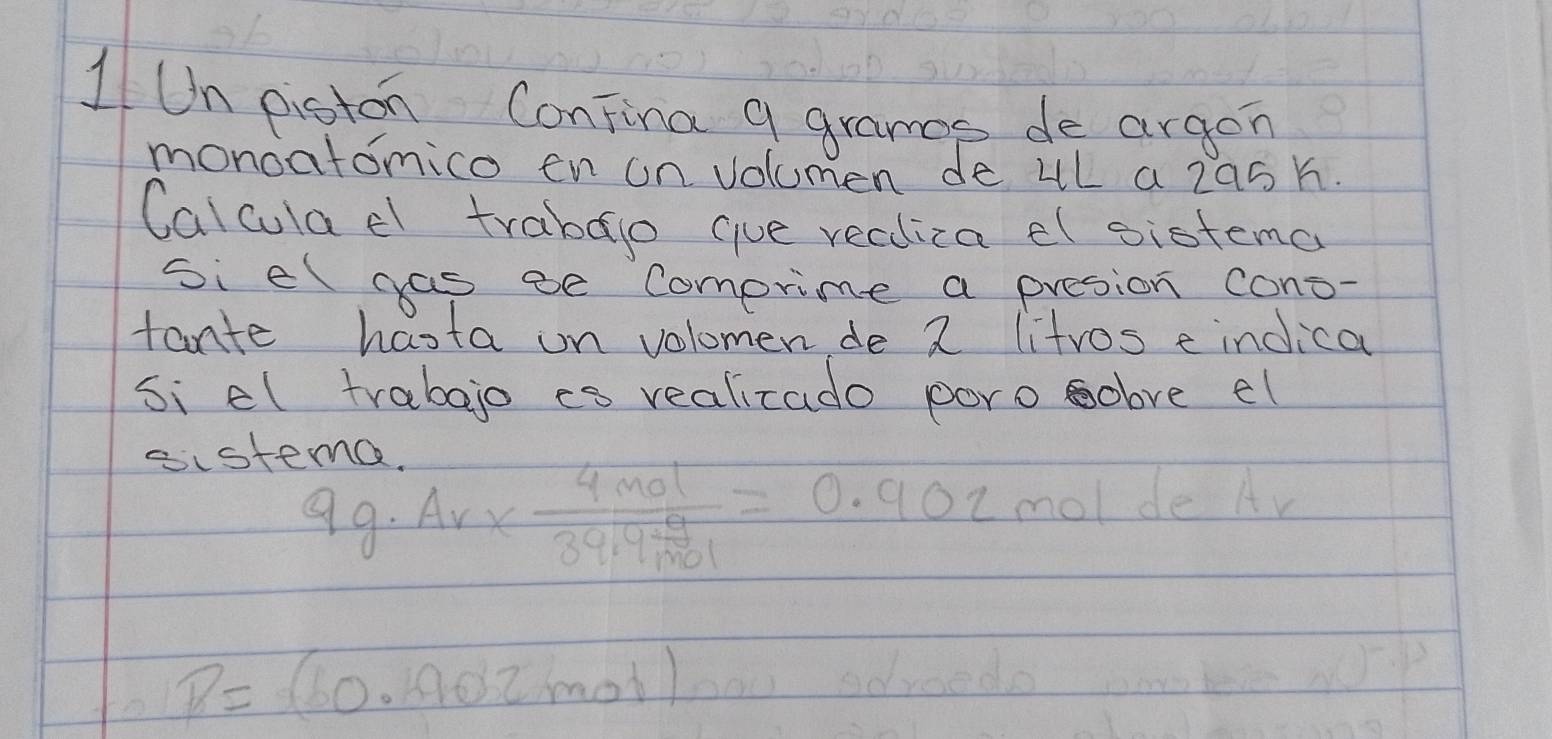 1. Un pistón Confina 9 gramos de argón
monoatómico en un volumen de 4L a 295 K.
Calcula el trabajo que realiza el sistema
Si el gas se Comprime a presión cons-
tante hasta un volumen de 2 litros e indica
Si el trabajo es realizado por o sobre el
sistema.
9g. Ar x 4 mol / 39.9 g/mol = 0.902 mol de Ar
P = (0.902 mol)